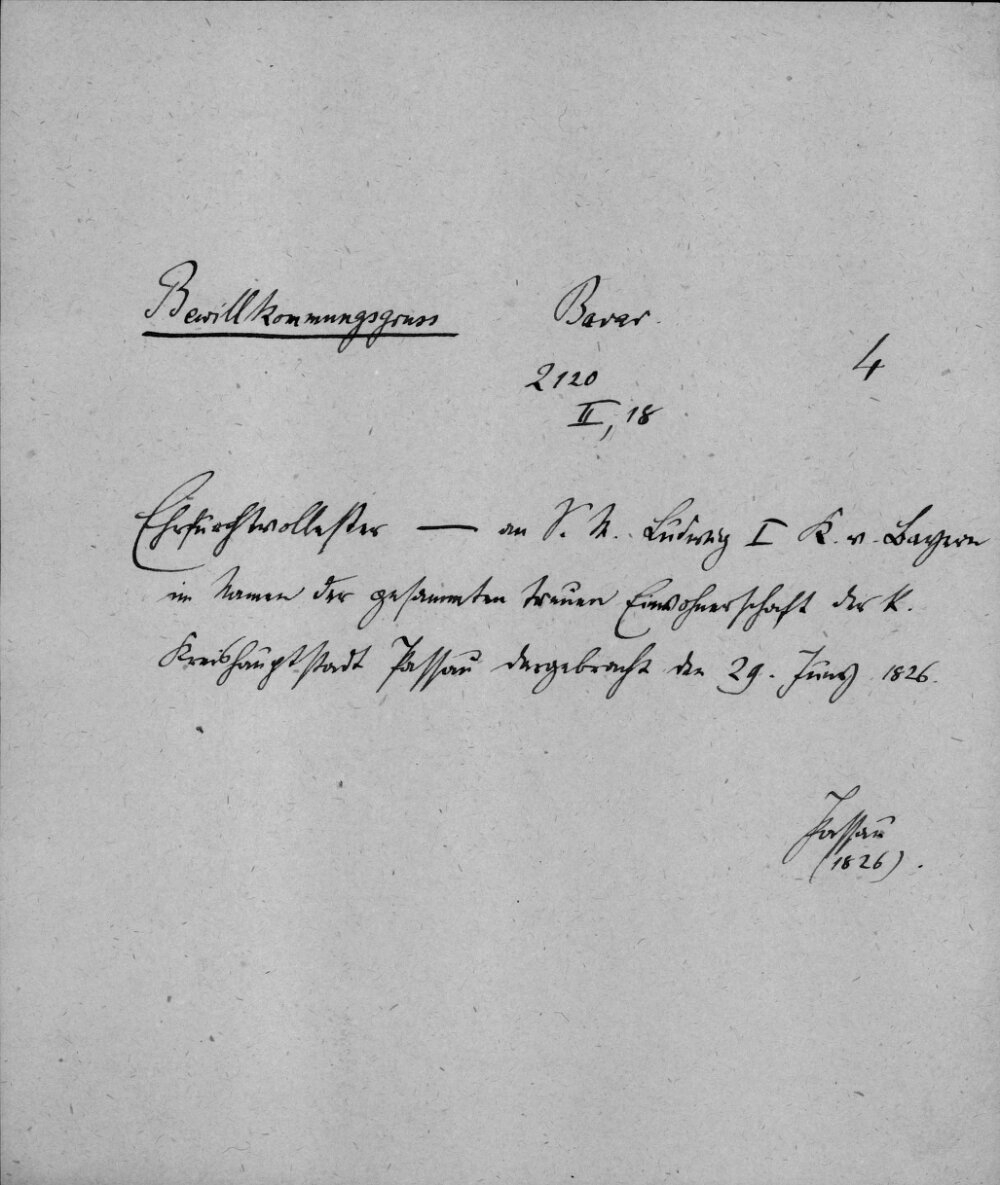 Bewillkommungsgruss
Bavar.
2120
II, 18
4
Ehrfurchtvollester — an S. M. Ludwig I K. v. Bayern
im Namen der gesammten treuen Einwohnerschaft der k.
Kreishauptstadt Passau dargebracht den 29. Juny 1826.
Passau
(1826).